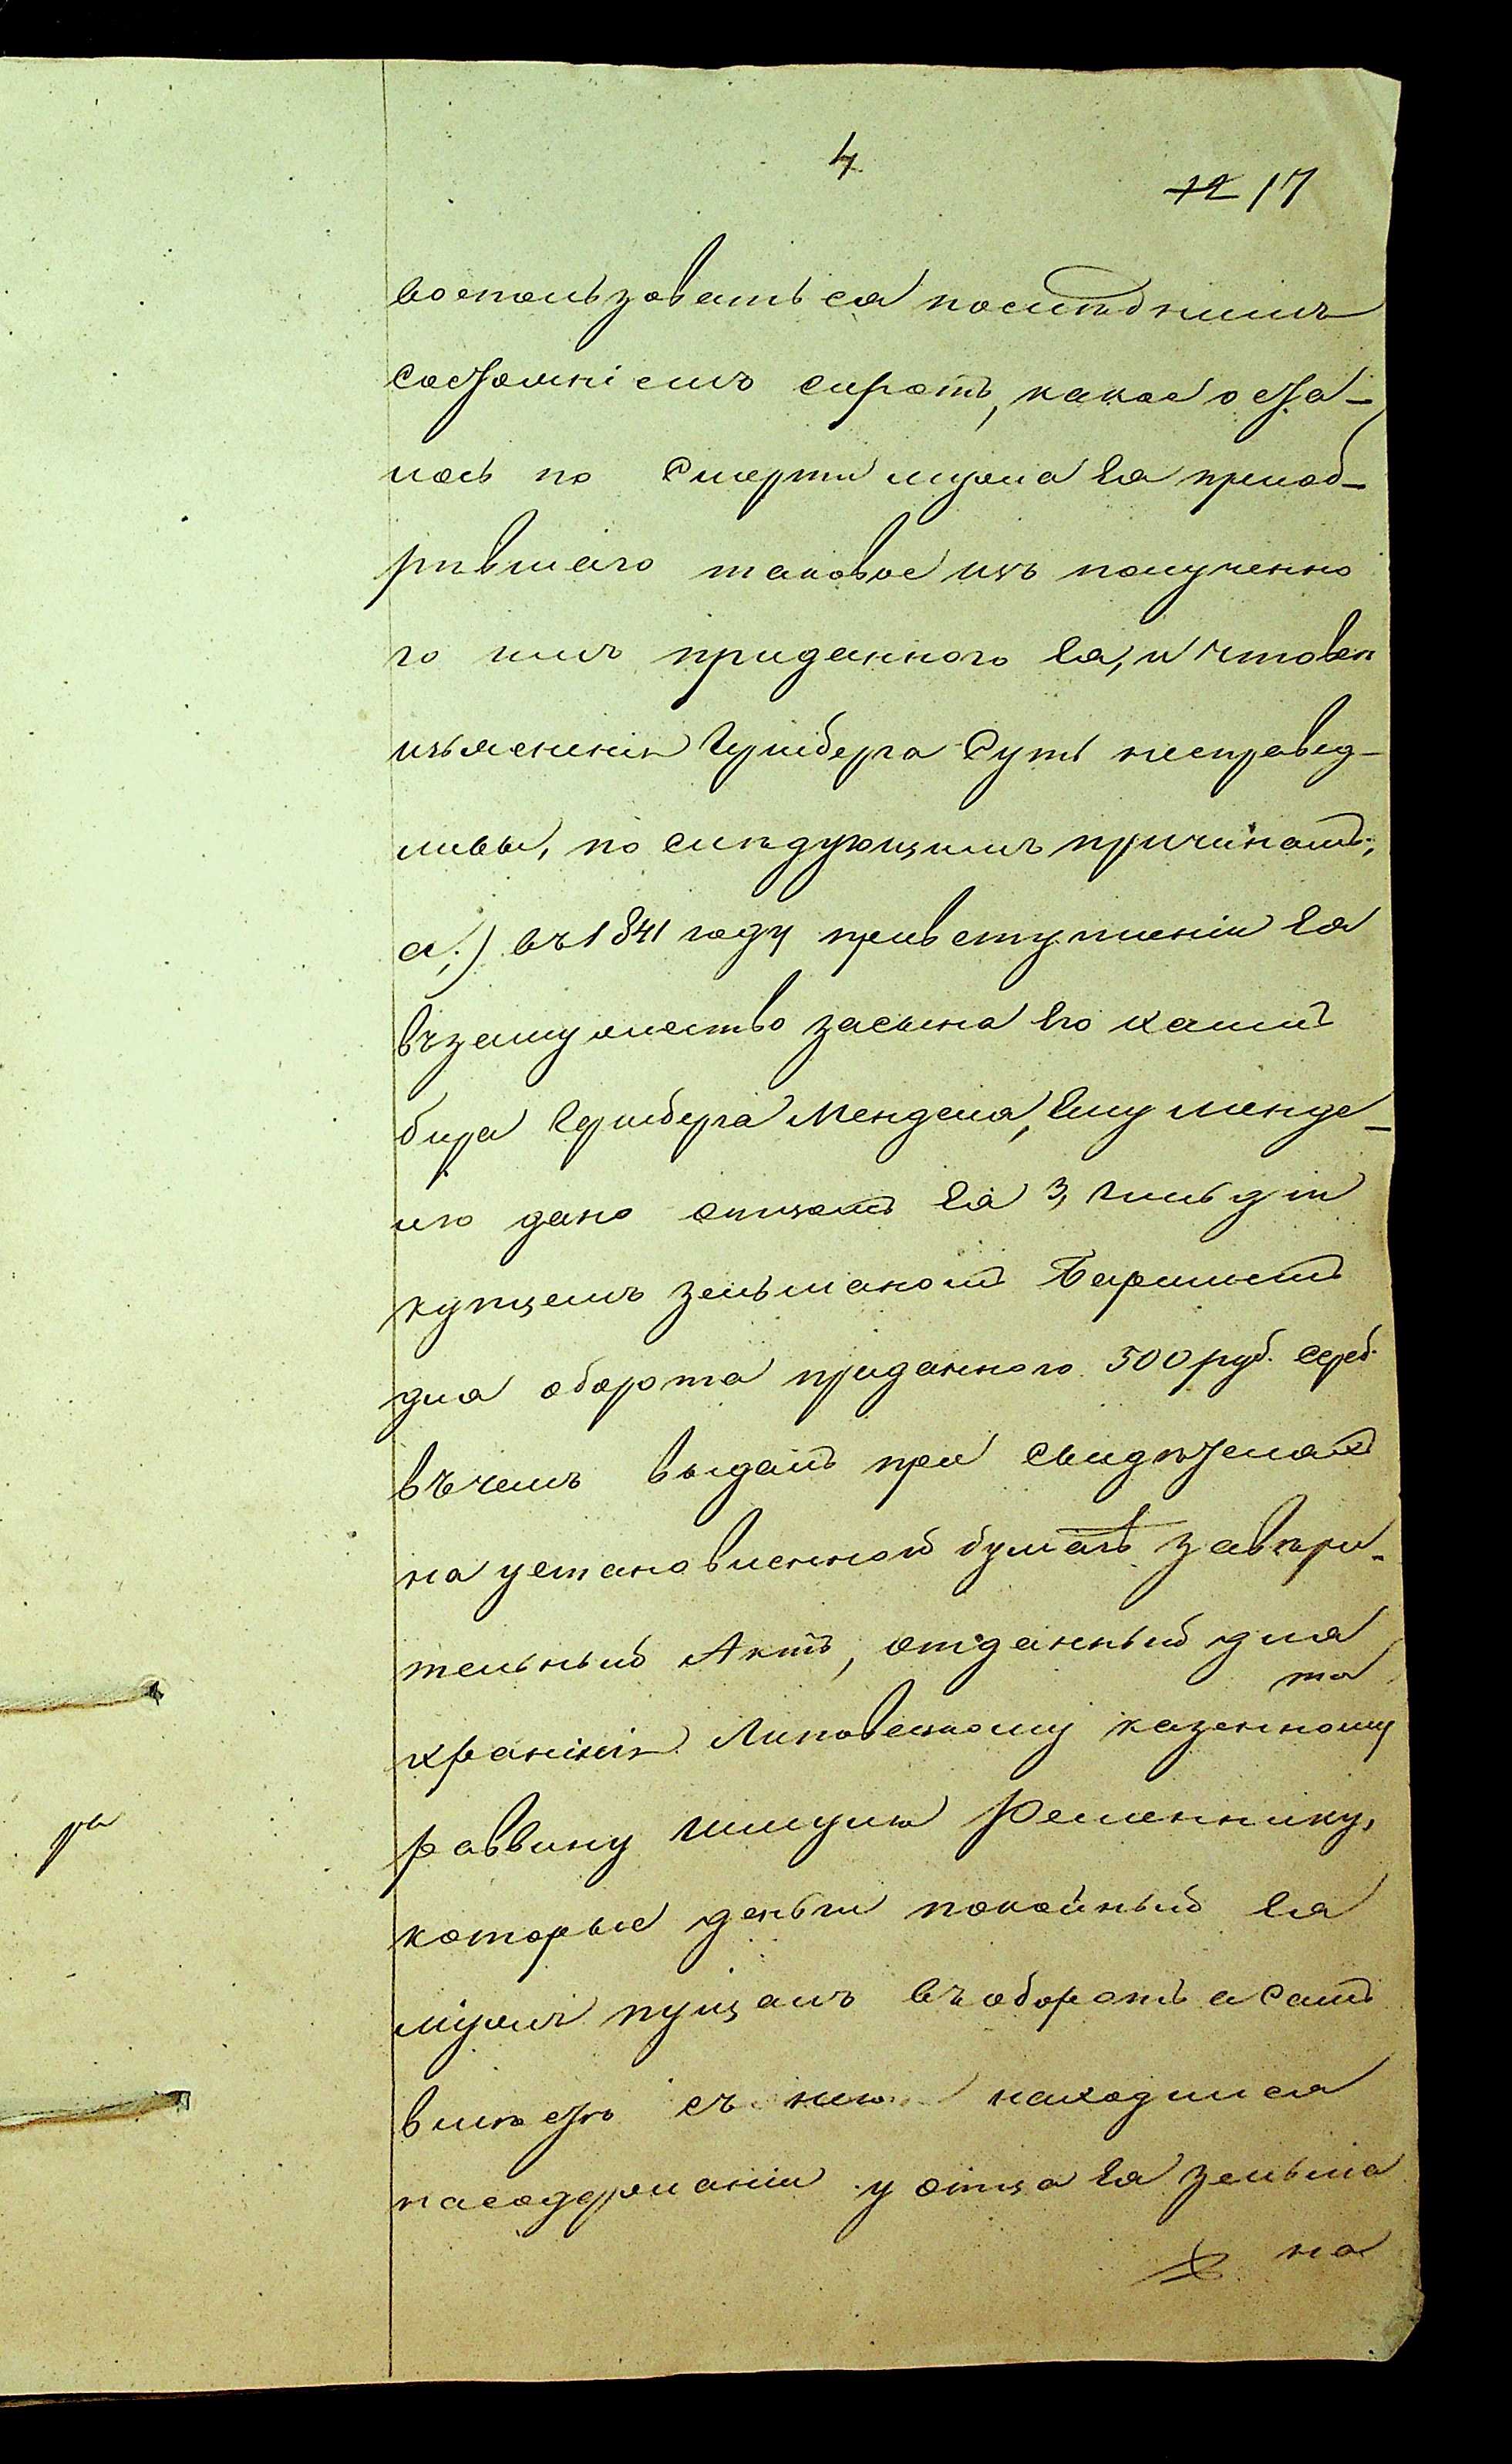 4
12 17
воспользоваться последнимъ
состояніемъ сиротъ, какое оста-
лось по Смерти мужа Ея приоб-
рѣвшаго таковое изъ полученно
го имъ приданного Ея, и что все
изъясненія Гринберга Суть несправед-
ливы, по слѣдующимъ причинамъ;
а,) въ 1841 году при вступленіи Ея
въ замужество за сына Его Хаим
бера Гринберга Менделя, Ему Менде-
лю дано отцомъ Ея 3, Гильдіи
купцемъ Зельманомъ
для оборота приданного 500 руб. Сереб.
въ чемъ выданъ при свидѣтеляхъ
на установленной бумагѣ завѣри-
тельный Актъ, отданный для
храненія Липовецкому казенному
та
раввину Шмулю Ременнику,
которые деньги покойный Ея
мужъ пущалъ въ оборотъ а самъ
вмѣстѣ съ нею находился
на содержаніи у отца Ея Зельма
на
ра